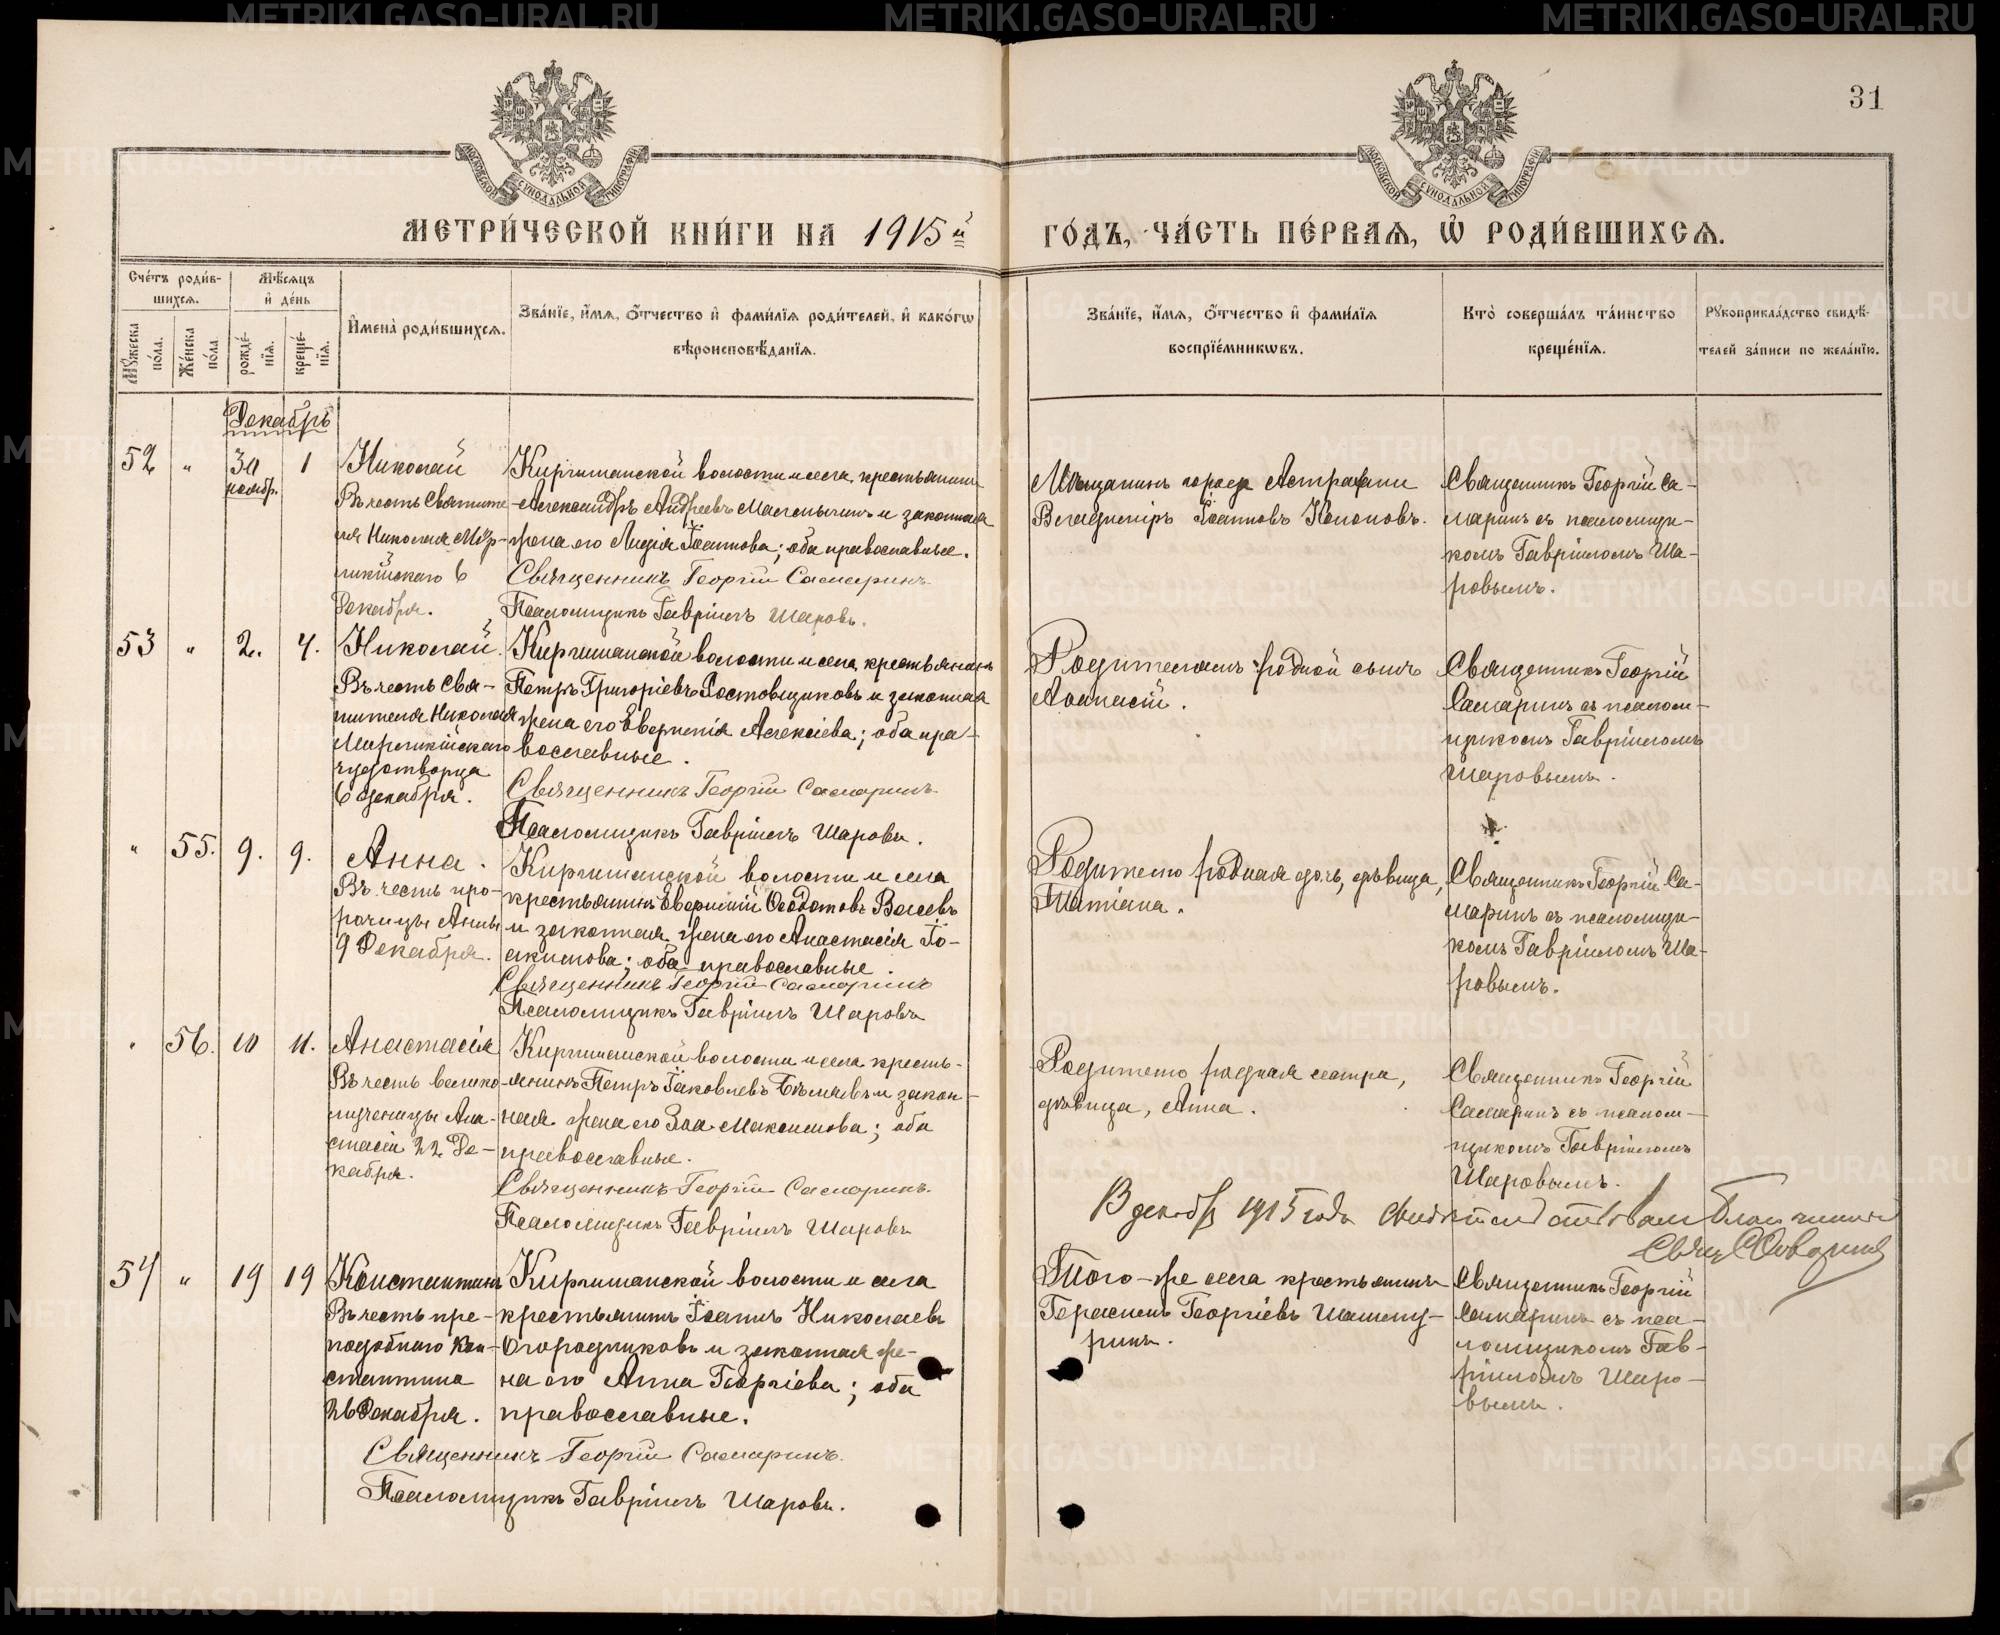 31
МОСКОВСКОЙ СѴНОДАЛЬНОЙ ТИПОГРАФІИ
МОСКОВСКОЙ СѴНОДАЛЬНОЙ ТИПОГРАФІИ
МЕТРИ́ЧЕСКОЙ КНИ́ГИ НА 1915й ГО́ДЪ, ЧА́СТЬ ПЕ́РВАѦ, Ѡ҆ РОДИ́ВШИХСѦ.
Сче́тъ роди́в-
шихсѧ.
Мѣ́сѧцъ
и҆ де́нь
Мꙋ́жеска по́ла.
Же́нска по́ла
рожде́нїѧ.
креще́нїѧ.
И҆мена̀ роди́вшихсѧ.
Зва́нїе, и҆́мѧ, ѻ҆́тчество и҆ фами́лїѧ роди́телей, и҆ како́гѡ
вѣроисповѣ́данїѧ.
Зва́нїе, и҆́мѧ, ѻ҆́тчество и҆ фами́лїѧ
воспрїе́мникѡвъ.
Кто̀ соверша́лъ та́инство
креще́нїѧ.
Рꙋкоприкла́дство свидѣ́-
телей за́писи по жела́нїю.
Декабрь
52 " 30 ноябр. 1
Николай
Въ честь Святите-
ля Николая Мѵр-
ликійскаго 6
Декабря.
Киргишанской волости и села крестьянинъ
Александръ Андреевъ и законная
жена его Лидія Іоаннова; оба православные.
Священникъ Георгій Самаринъ
Псаломщикъ Гавріилъ Шаровъ.
Мѣщанинъ города Астрахани
Владиміръ Іоанновъ Кононовъ.
Священникъ Георгій Са-
маринъ съ псаломщи-
комъ Гавріиломъ Ша-
ровымъ.
53 " 2. 4.
Николай.
Въ честь Свя-
тителя Николая
Мирликійскаго
чудотворца
6 декабря.
Киргишанской волости и села крестьянинъ
Петръ Григорьевъ Ростовщиковъ и законная
жена его Евгенія Алексіева; оба пра-
вославные.
Священникъ Георгій Самаринъ
Псаломщикъ Гавріилъ Шаровъ.
Родителямъ родной сынъ
Аѳанасій.
Священникъ Георгій
Самаринъ съ псалом-
щикомъ Гавріиломъ
Шаровымъ.
" 55. 9. 9.
Анна.
Въ честь про-
рочицы Анны
9 Декабря.
Киргишанской волости и села
крестьянинъ Ѳеодотовъ Васевъ
и законная жена его Анастасія Іо-
акимова; оба православные.
Священникъ Георгій Самаринъ
Псаломщикъ Гавріилъ Шаровъ
Родителю родная дочь, дѣвица,
Татіана.
Священникъ Георгій Са-
маринъ съ псаломщи-
комъ Гавріиломъ Ша-
ровымъ.
" 56. 10 11.
Анастасія
Въ честь велико-
мученицы Ана-
стасіи 22 Де-
кабря.
Киргишанской волости и села кресть-
янинъ Петръ Іаковлевъ Бѣляевъ и закон-
ная жена его Зоа Максимова; оба
православные.
Священникъ Георгій Самаринъ.
Псаломщикъ Гавріилъ Шаровъ
Родителю родная сестра,
дѣвица, Анна.
Священникъ Георгій
Самаринъ съ псалом-
щикомъ Гавріиломъ
Шаровымъ.
В декабр 1915 года свидѣтельствовал Благочинный
Свящ
54 " 19 19
Константинъ
Въ честь пре-
подобнаго Кон-
стантина
26 Декабря.
Киргишанской волости и села
крестьянинъ Іоаннъ Николаевъ
Огородниковъ и законная же-
на его Анна Георгіева; оба
православные.
Священникъ Георгій Самаринъ.
Псаломщикъ Гавріилъ Шаровъ.
Того-же села крестьянинъ
Герасимъ Георгіевъ Шашму-
ринъ.
Священникъ Георгій
Самаринъ съ пса-
ломщикомъ Гав-
ріиломъ Шаро-
вымъ.
METRIKI.GASO-URAL.RU